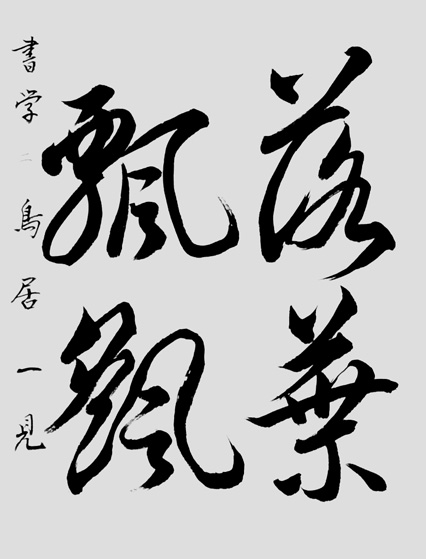 落葉
飄颻
書学二鳥居一見